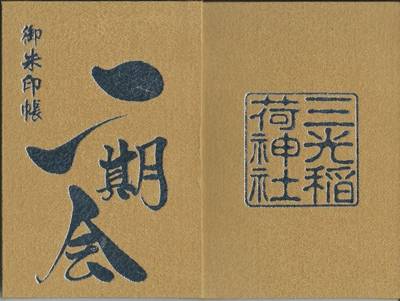 御朱印帳
一期一会
三光稲
荷神社